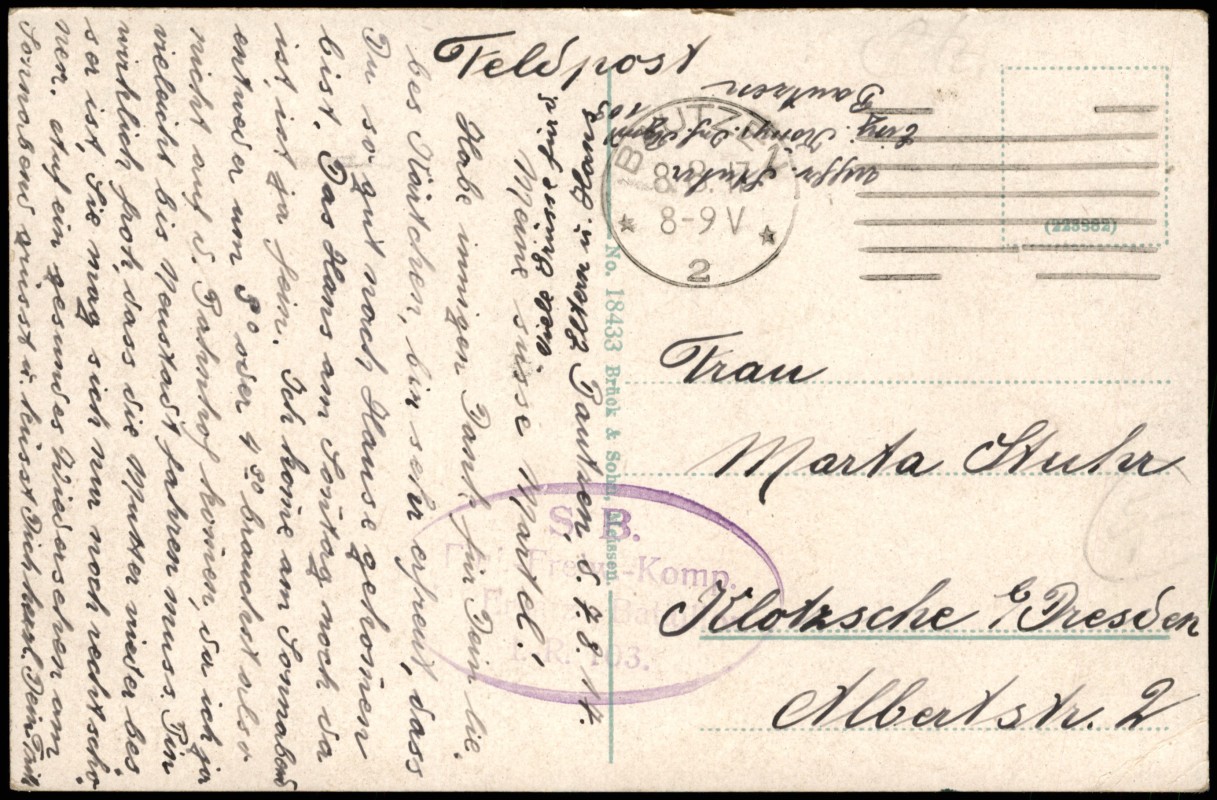 Feldpost
Bautzen, d. 7.8.17.
Meine süsse Martel!
Habe innigen Dank für Dein lie-
bes Kärtchen, bin sehr erfreut, dass
Du so gut nach Hause gekom̄en
bist. Das Hans am Son̄tag noch da
ist, ist ja fein. Ich kom̄e am Sonnabend
entweder um 9° oder 1 30 brauchst also
nicht auf d. Bahnhof kom̄en, da ich ja
vieleicht bis Neustadt fahren muss. Bin
wirklich froh, dass die Mutter wieder bes-
ser ist, Sie mag sich nur noch recht scho-
nen. Auf ein gesundes Wiedersehen am
Sonnabend grüsst u. küsst Dich
BAUTZEN
8.8.17
8-9 V
2
Bautzen
(223982)
No. 18433 Brück & Sohn, Meissen.
S. B.
-Komp.
I. R. 103.
Frau
Marta Stuhr
Klotzsche b/Dresden
Albertstr. 2